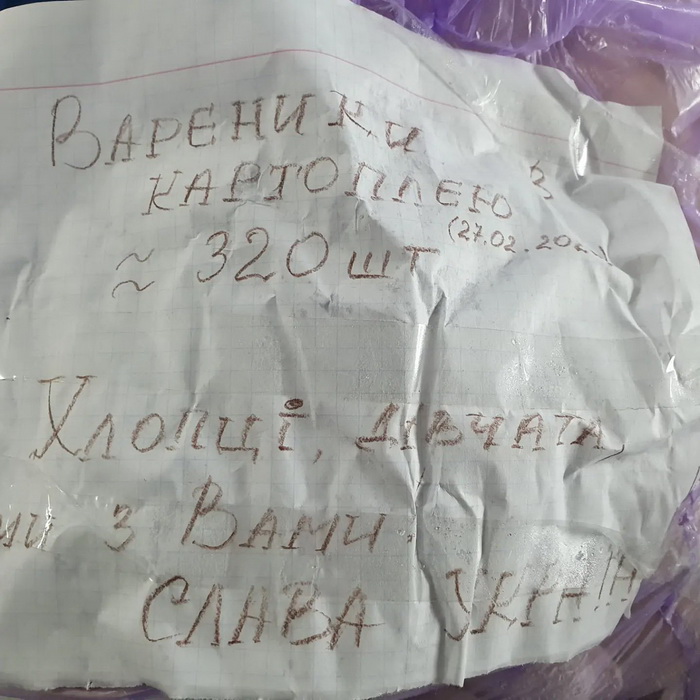 Вареники з
картоплею
≈ 320 шт (27.02.202
Хлопці, дівчата,
ми з Вами.
Слава Укр